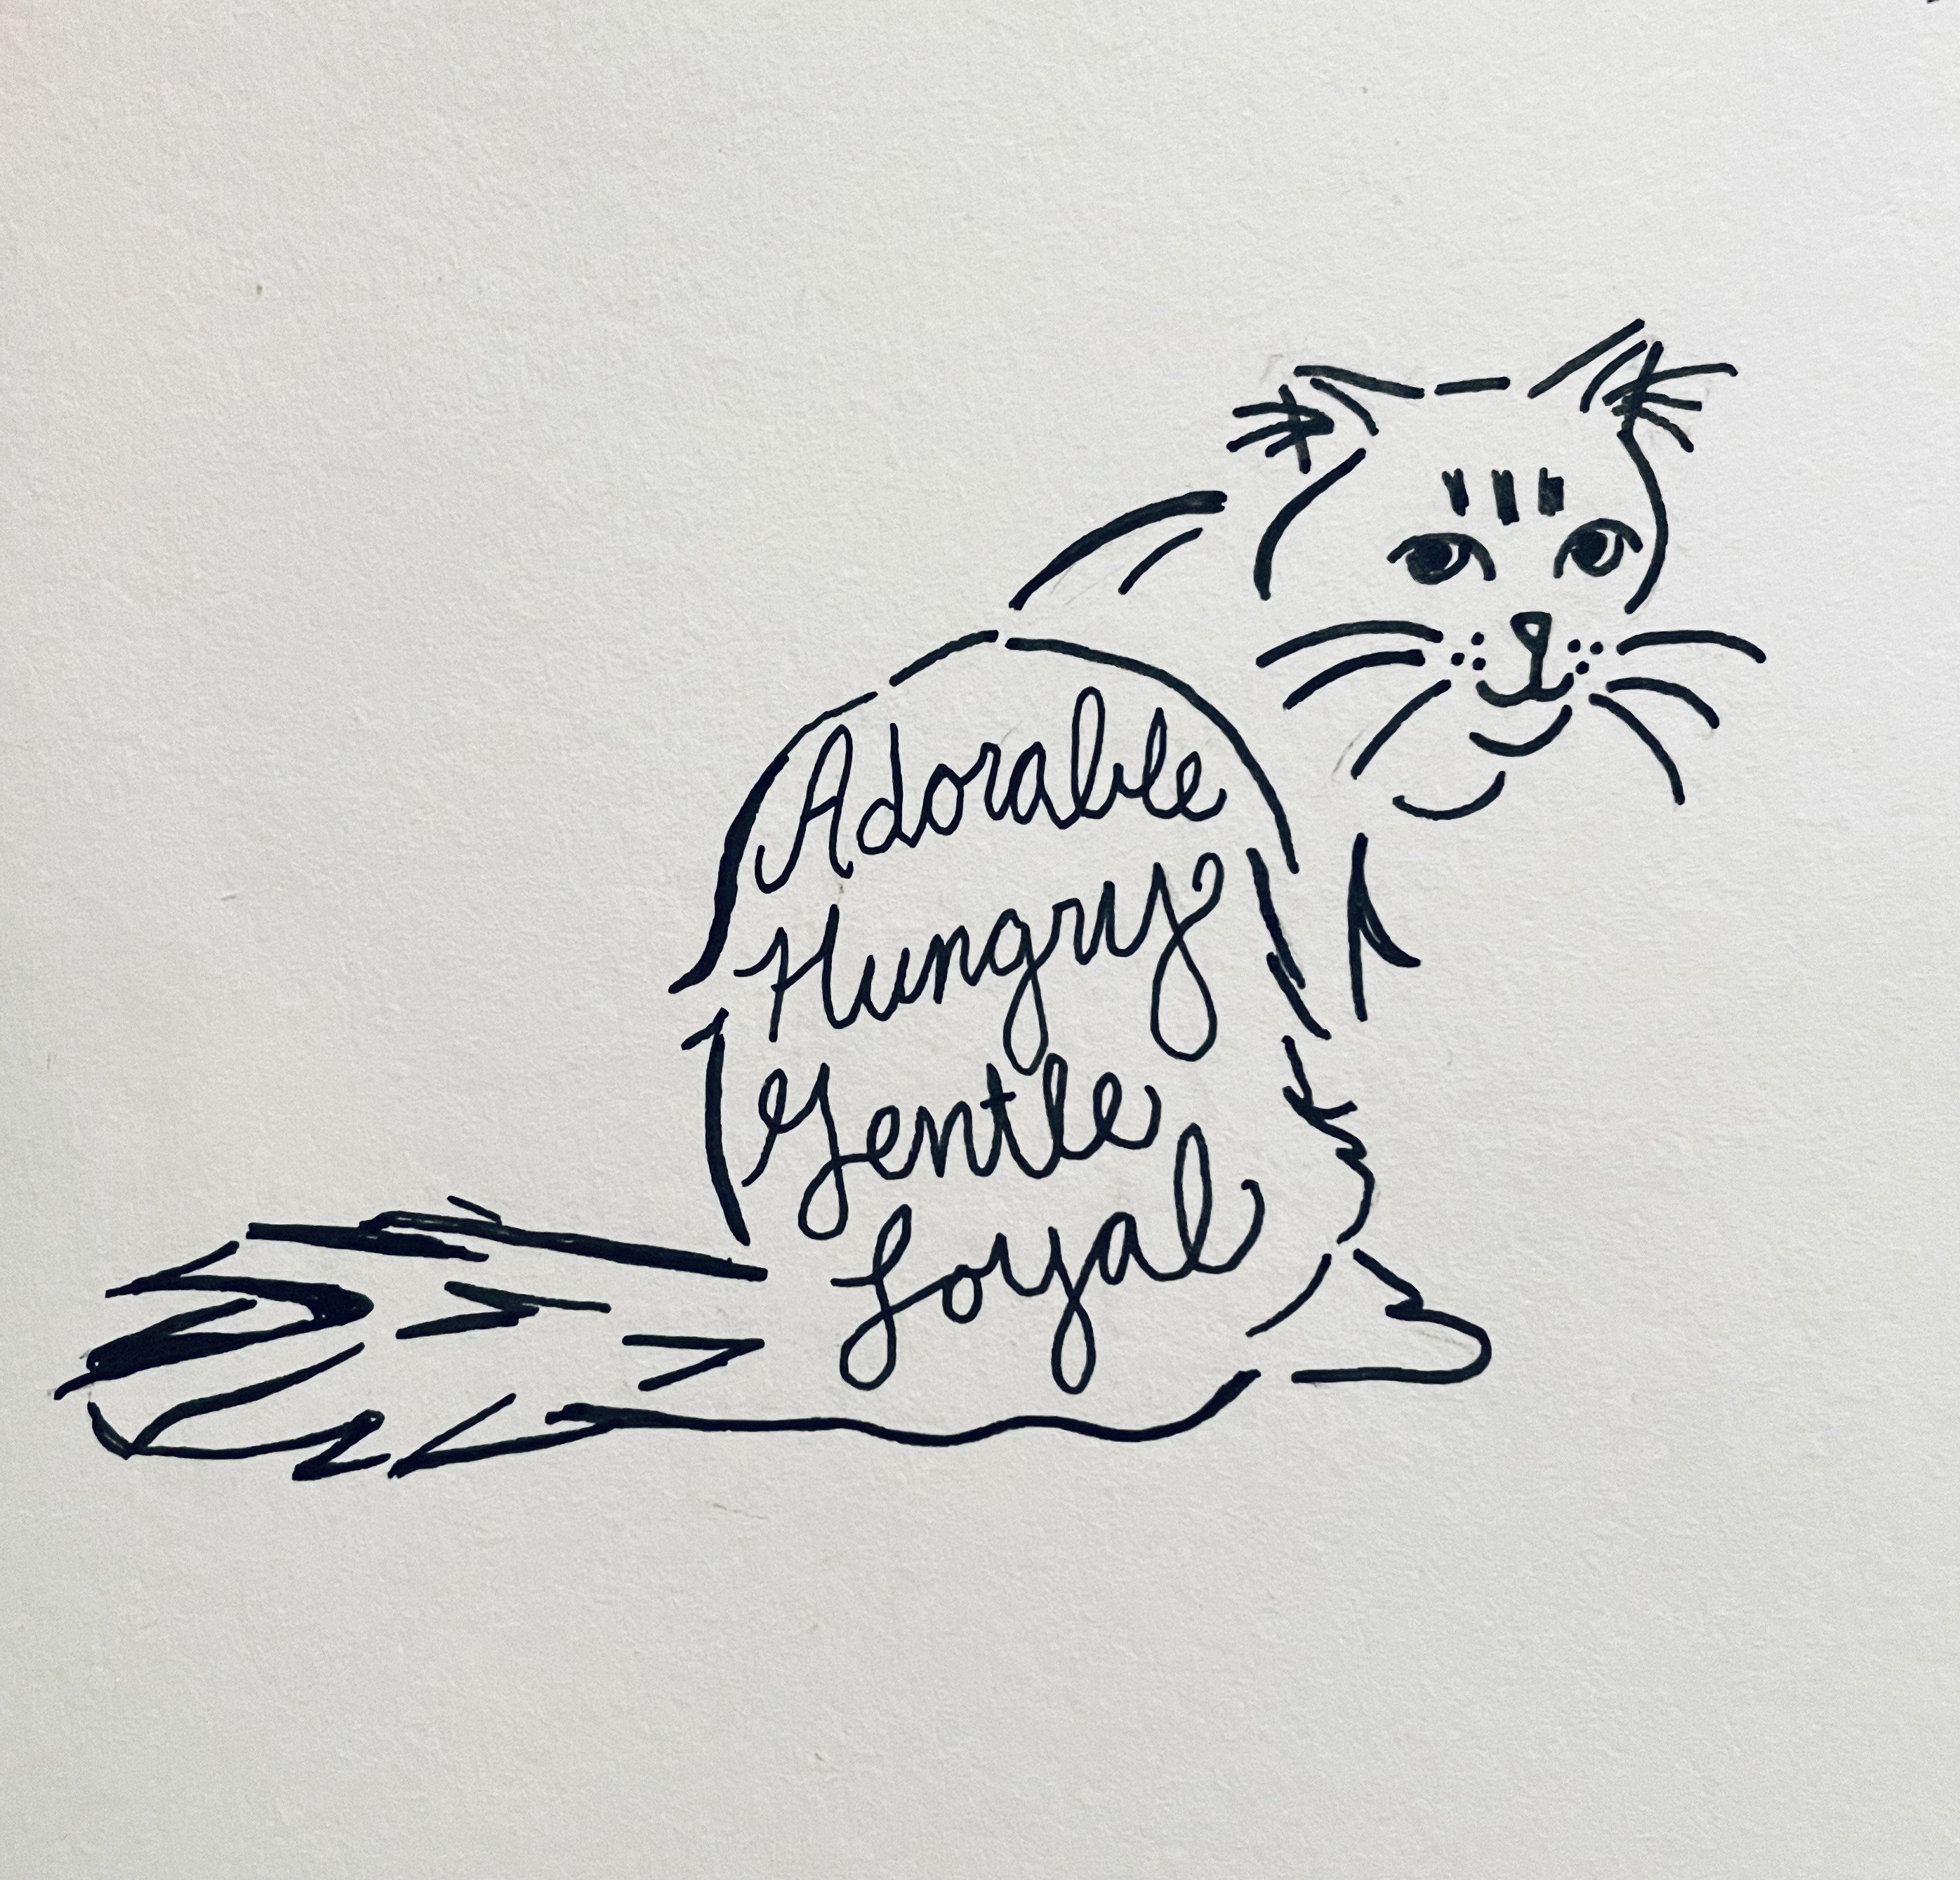 Adorable
Hungry
Gentle
Loyal